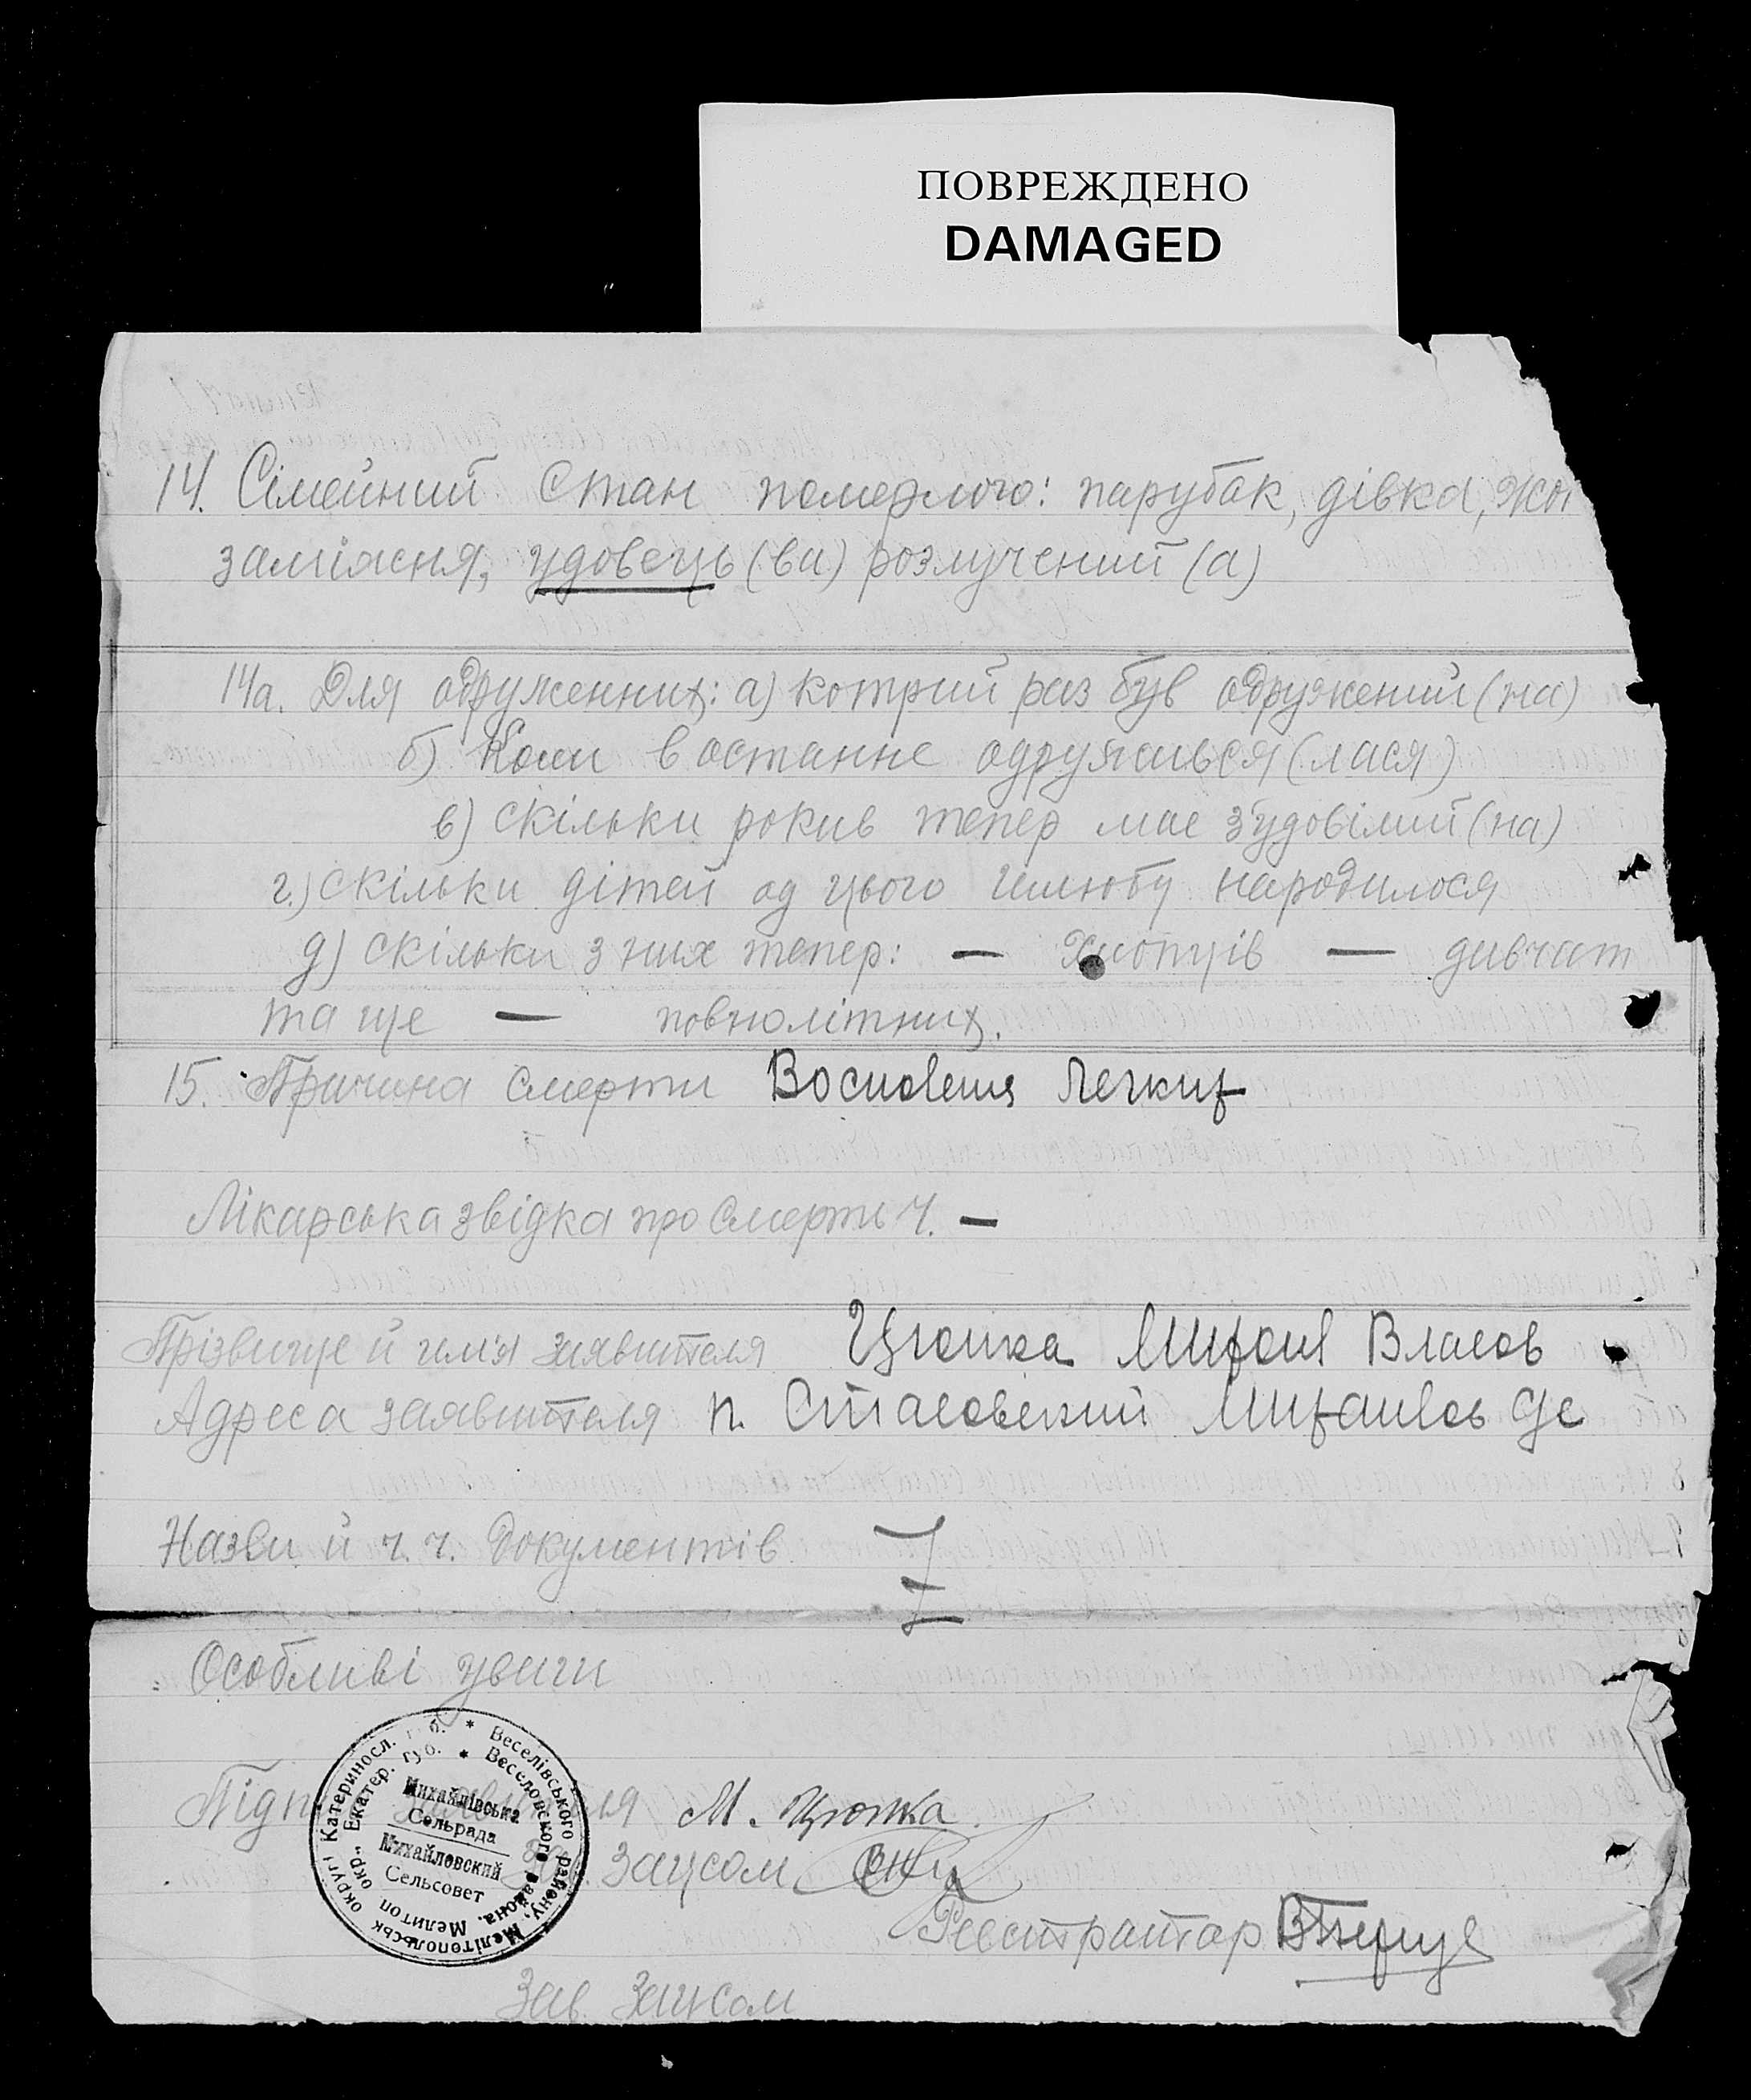 ПОВРЕЖДЕНО
DAMAGED
14. Сімейний Стан померлого: парубак, дівка, жон
заміжня, удовець (ва) розлучений (а)
14а. Для одруженних: а) котрий раз був одружений (на)
б) Коли востанне одружився (лася)
в) скільки рокив тепер мае з'удовілий (на)
г.) скільки дітей од цього шлюбу народилося
д) скільки з них тепер: — Хлопців — дивчат
та ще — повнолітних.
15. Причина Смерти Воспoление Легких
Лікарська звідка про Смерть Ч. —
Прізвище й имя заявителя Цюпка Михаил Власов
Адреса заявителя п. Стасовский Михайловс
Назви й ч. ч. Документів
Особливі уваги
М. Цюпка
Зацсом
Реєстратор
Зав. Зацсом
Катериносл. губ. * Веселівського району, Мелітопольськ округі
Екатер. губ. * Веселовского района, Мелитоп окр.,
Михайлівська
Сельрада
Михайловский
Сельсовет